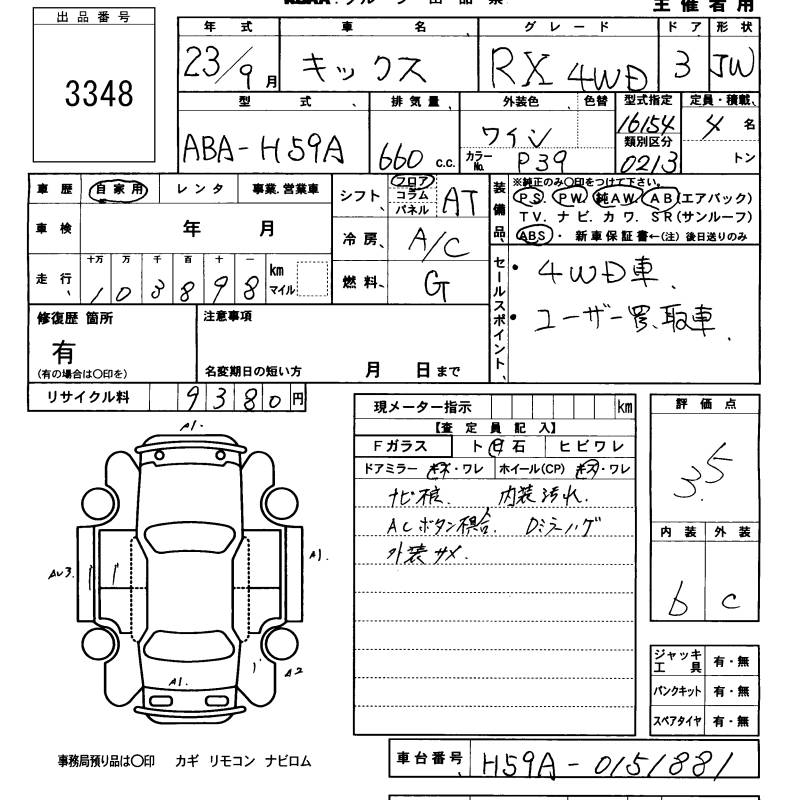 主催者用
出品番号
3348
年式 車名 グレード ドア 形状
23/9月 キックス RX 4WD 3 JW
型式 排気量 外装色 色替 型式指定 定員・積載
ABA-H59A 660 c.c. ワイン 16154 4 名
カラーNo. P39 類別区分 0213 トン
車歴 自家用 レンタ 事業.営業車
車検 年 月
走行 十万 万 千 百 十 一 km マイル
1 0 3 8 9 8
シフト フロア コラム パネル AT
冷房 A/C
燃料 G
装備品 ※純正のみ〇印をつけて下さい。
P.S. P.W. 純AW. AB(エアバック)
T.V. ナビ. カワ. SR(サンルーフ)
ABS・新車保証書←(注)後日送りのみ
セールスポイント
・4WD車
・ユーザー買取車.
修復歴 箇所 注意事項
有
(有の場合は〇印を) 名変期日の短い方 月 日まで
リサイクル料 9380円
現メーター指示 km
【査定員記入】
Fガラス ト日石 ヒビワレ
ドアミラー キズ・ワレ ホイール(CP) キズ・ワレ
内装汚れ.
ACボタン
外装サメ.
評価点
3.5
内装 外装
b c
ジャッキ 工具 有・無
パンクキット 有・無
スペアタイヤ 有・無
A1.
A1.
A2
A1.
事務局預り品は〇印 カギ リモコン ナビロム
車台番号 H59A-0151881